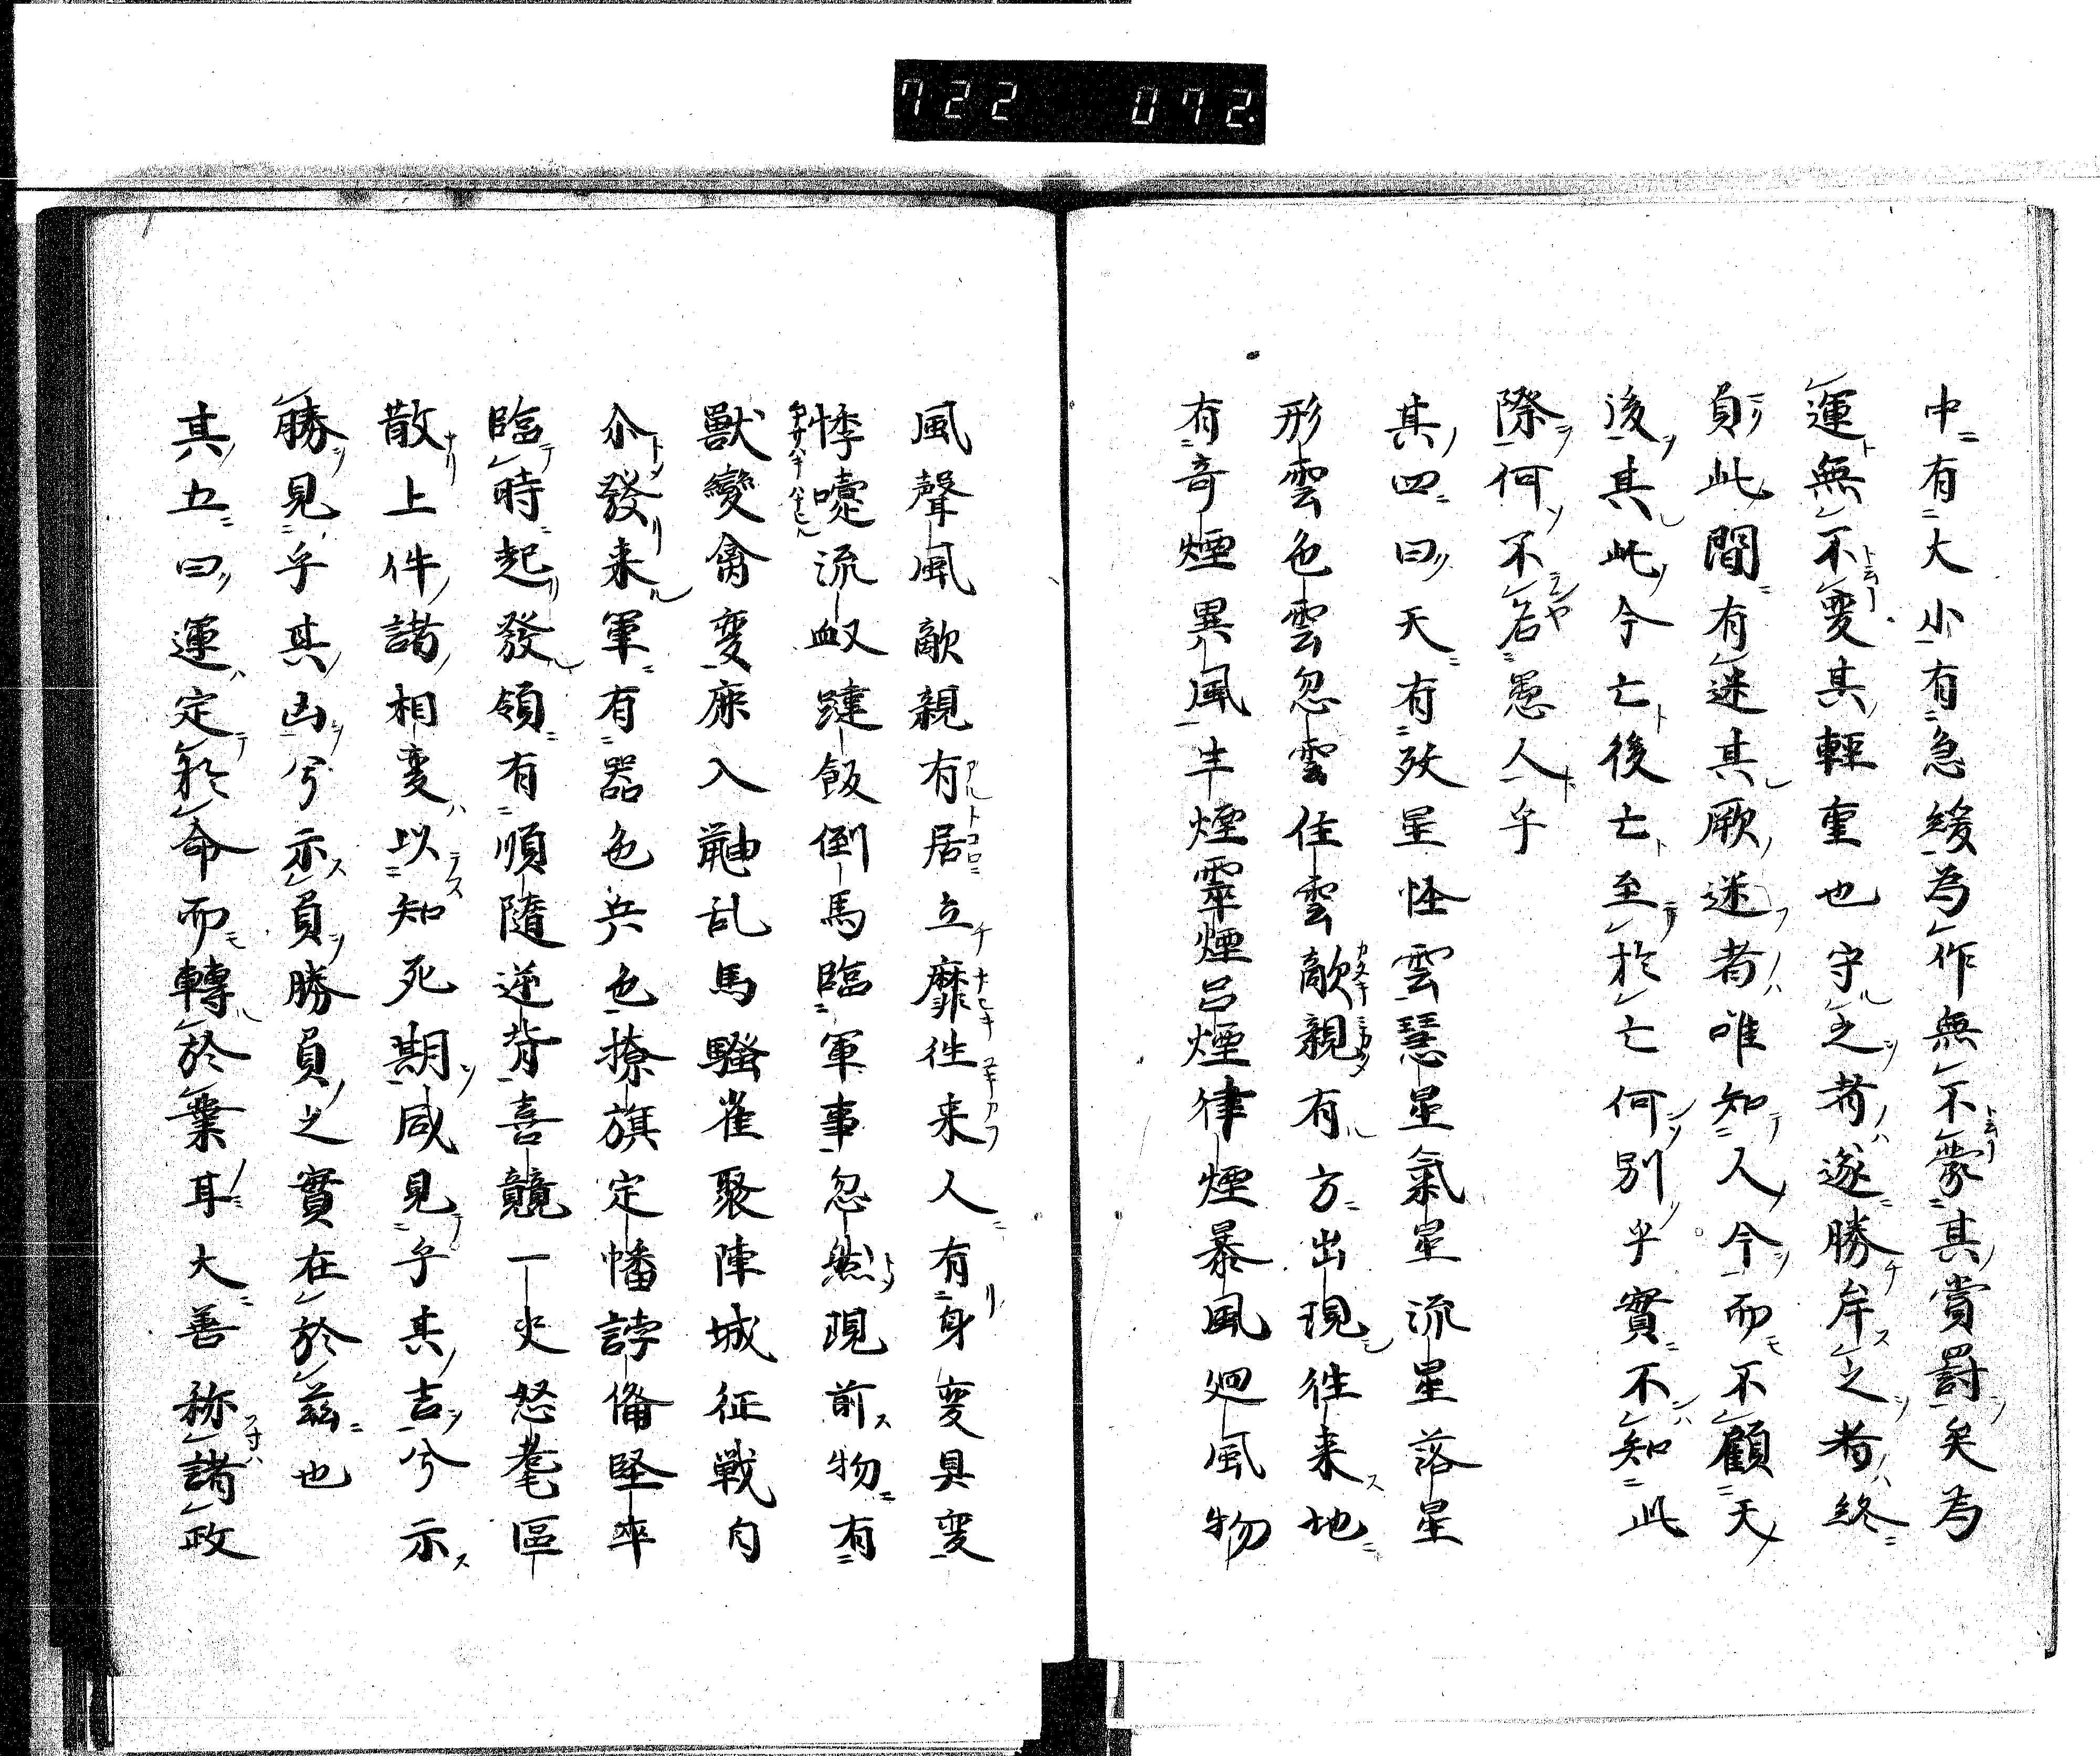 722 072.
中有大小有急緩為作無不蒙其賞罰矣為
運無不變其輕重也守之者遂勝牟之者終
負此間有迷其厥迷者唯知人今而不顧天
後其此今亡後亡至於亡何別乎實不知此
際何不名愚人乎
其四曰天有妖星怪雲彗星氣星流星落星
形雲色雲忽雲住雲敵親有方出現往来地
有奇煙異風牟煙霏煙呂煙律煙暴風廻風物
風聲風敵親有居立靡往来人有身変具変
悸嚏流血躓飯倒馬臨軍事忽然現前物有
獸變禽変麻入鼬乱馬騷雀聚陣城征戦自
尒發来軍有器色兵色撩旗定幡誇備堅率
臨時起發領有順隨逆背喜競一史怒耄區
散上件諸相変以知死期咸見乎其吉兮示
勝見乎其凶兮示負勝負之實在於茲也
其五曰運定於命而轉於業耳大善称諸政